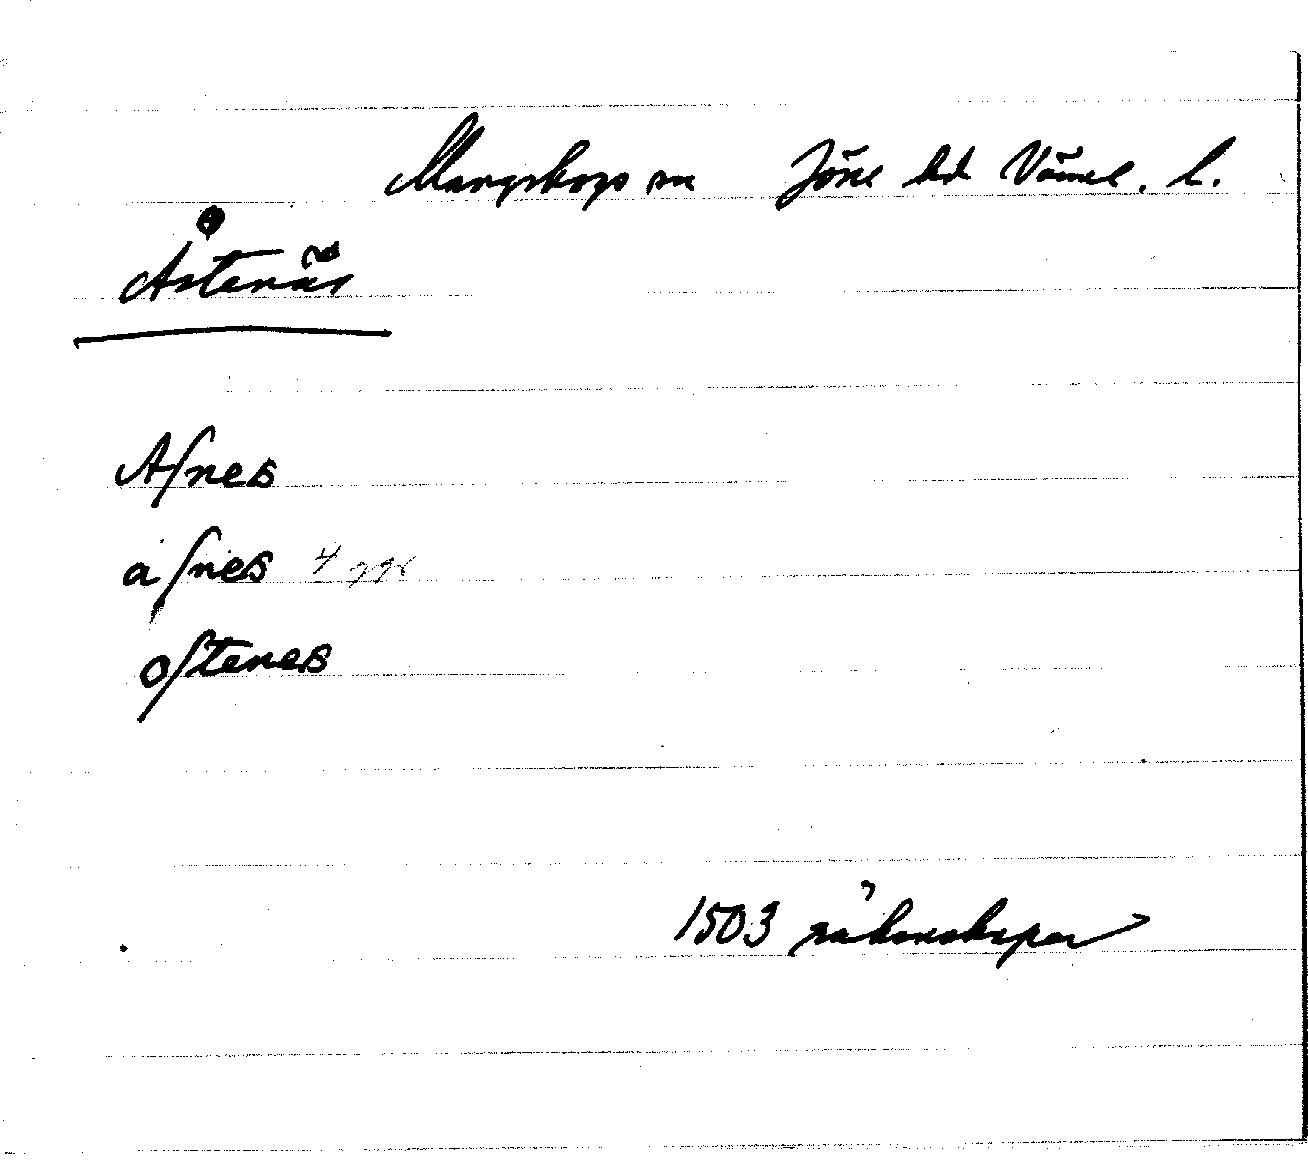 Mangskogs sn Jösse hd Värml. l.
Åstenäs
Aſnes
aſnes 4 ggr
oſtenes
1503 räkenskaper